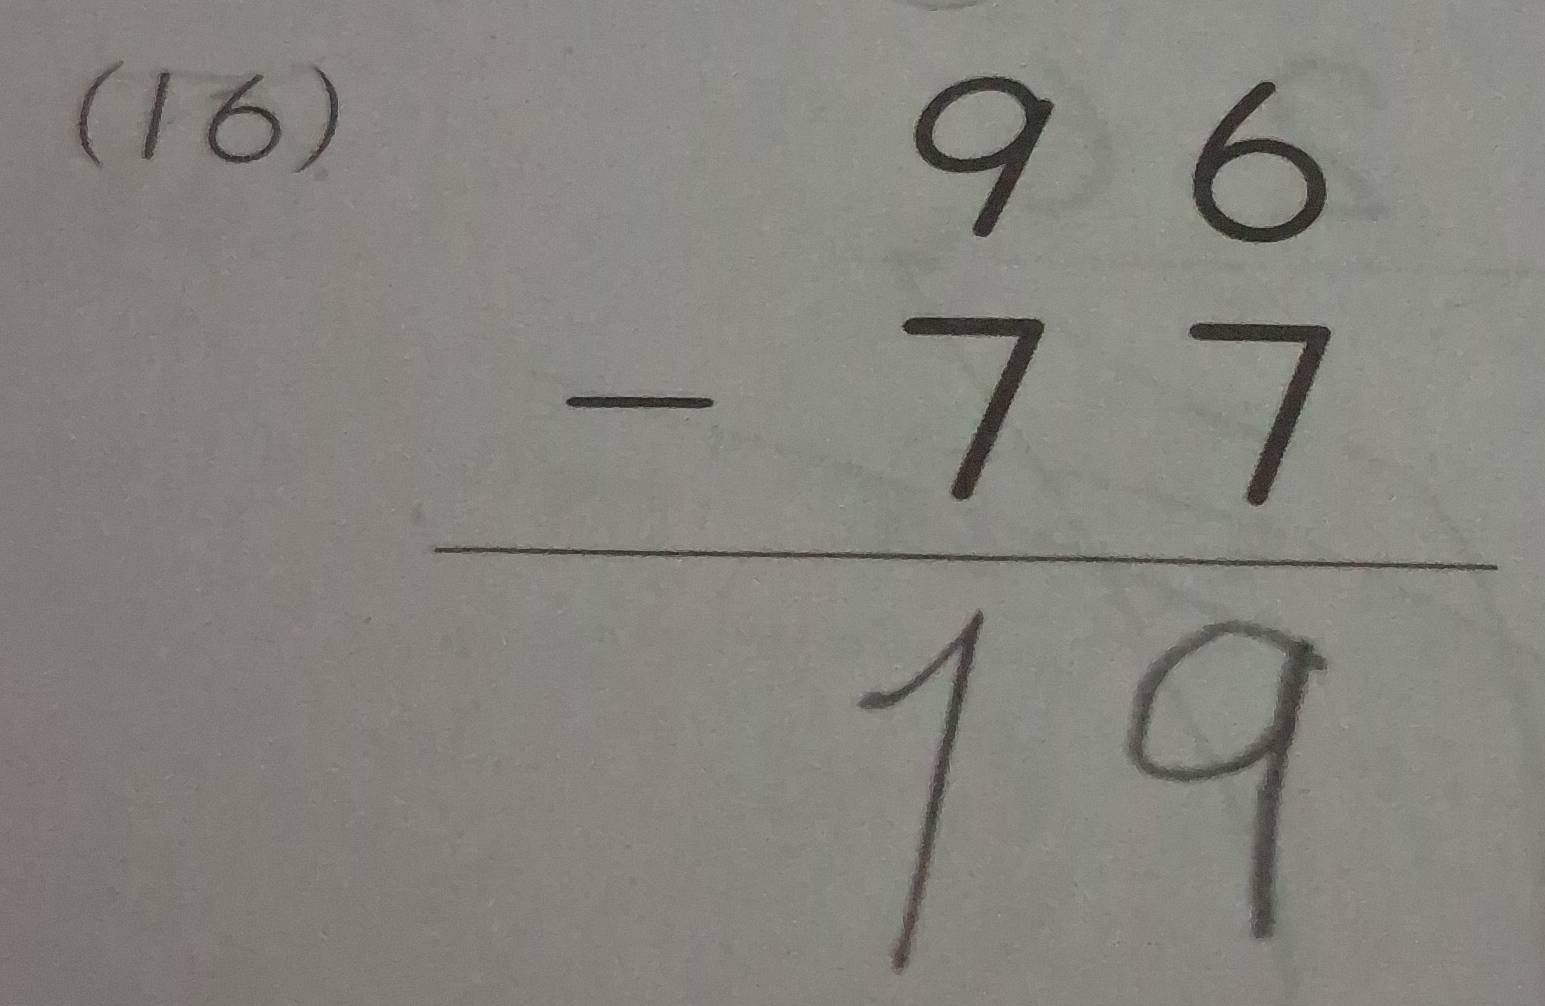 (16) 96
- 77
19